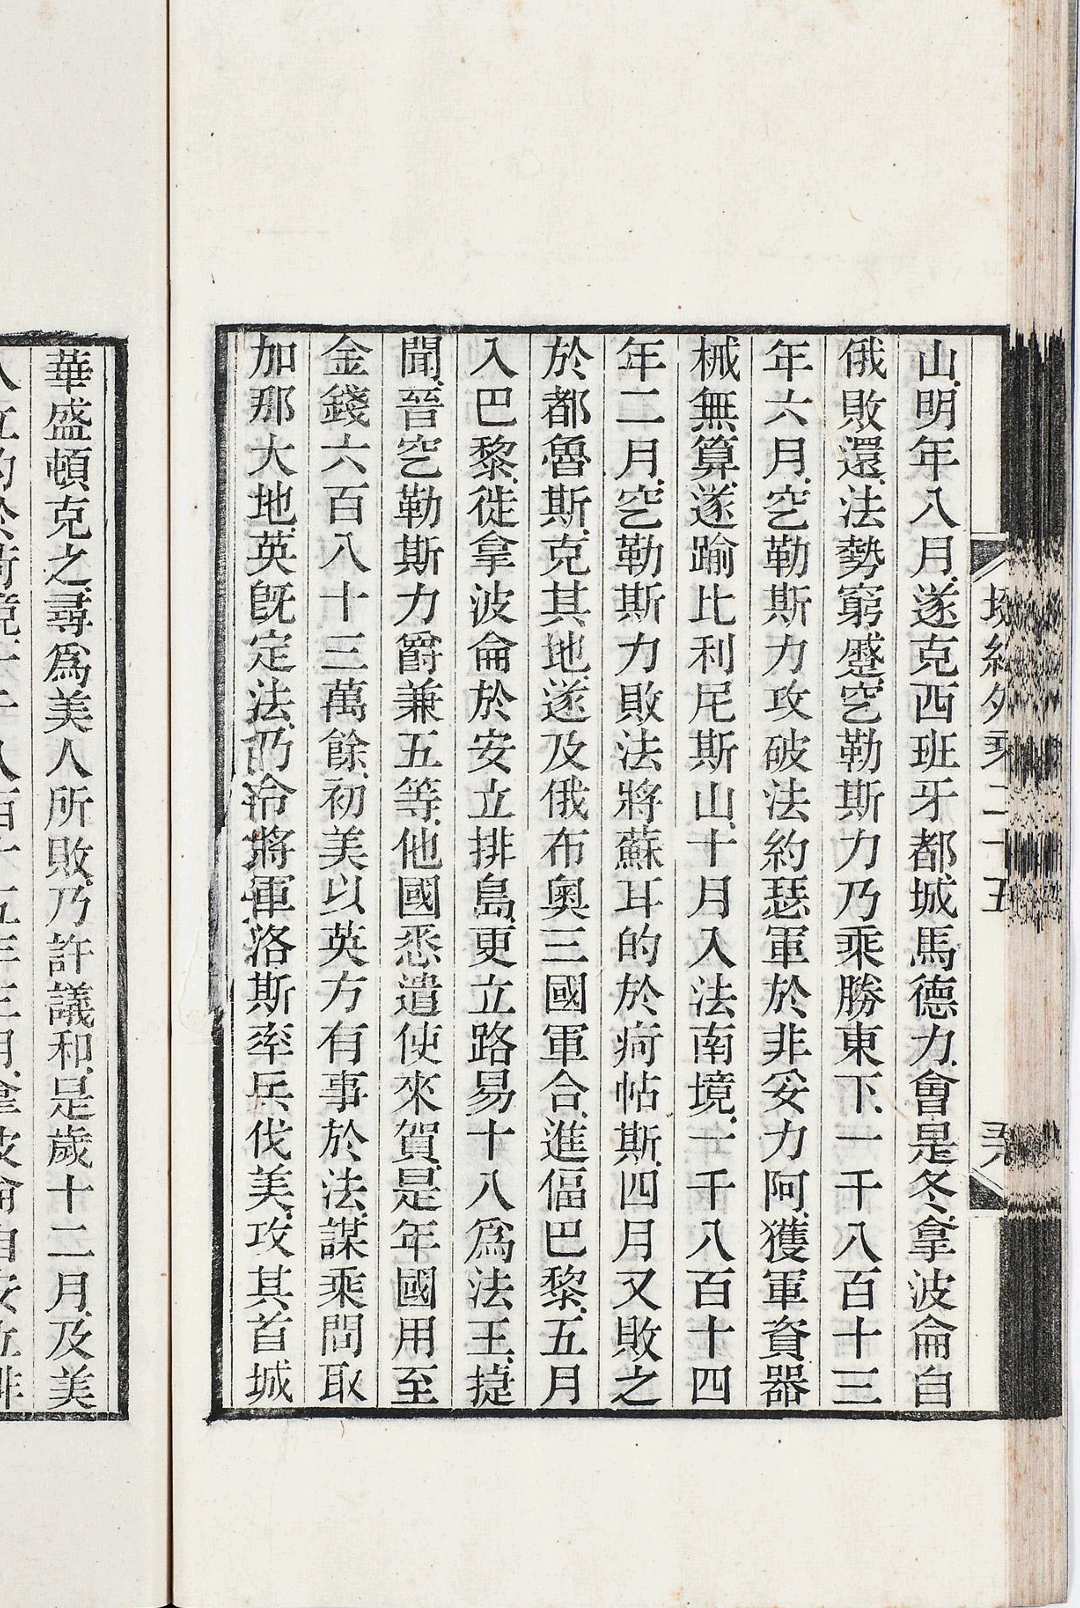 山、明年八月、遂克西班牙都城馬德力、會是冬、拿波侖自
俄敗還、法勢窮蹙、乞勒斯力乃乘勝東下、一千八百十三
年六月、乞勒斯力攻破法約瑟軍於非妥力阿、獲軍資器
械無算、遂踰比利尼斯山、十月入法南境、一千八百十四
年二月、乞勒斯力敗法將蘇耳的於痾帖斯、四月又敗之
於都魯斯、克其地、遂及俄布奧三國軍合、進偪巴黎、五月
入巴黎、徙拿波侖於安立排島、更立路易十八爲法王、㨗
聞、晉乞勒斯力爵兼五等、他國悉遣使來賀、是年國用至
金錢六百八十三萬餘、初美以英方有事於法、謀乘間取
加那大地、英既定法、乃令將軍洛斯率兵伐美、攻其首城
華盛頓克之、尋爲美人所敗、乃許議和、是歲十二月、及美